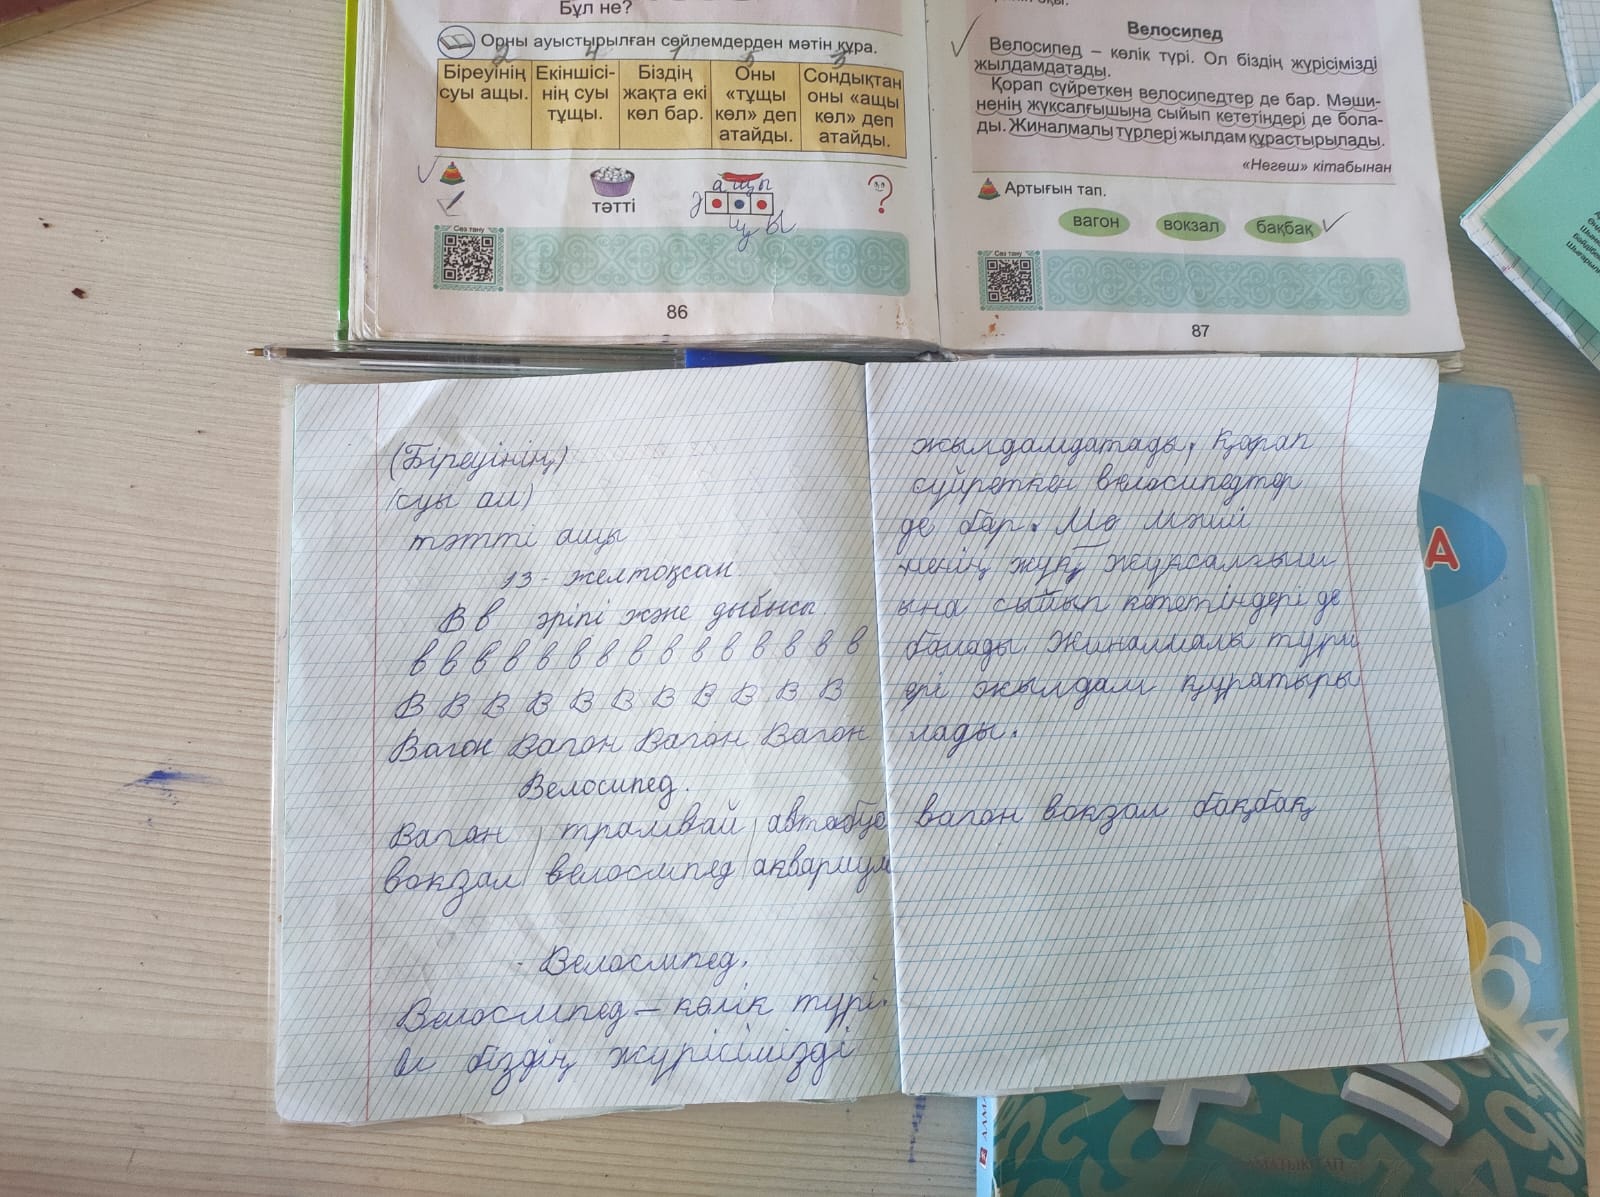 Бұл не?
Орны ауыстырылған сөйлемдерден мәтін құра.
2 4 1 5 3
Біреуінің суы ащы.
Екіншісі-
нің суы
тұщы.
Біздің
жақта екі
көл бар.
Оны
«тұщы
көл» деп
атайды.
Сондықтан
оны «ащы
көл» деп
атайды.
тәтті
ащы
Сөз тану
86
Велосипед
Велосипед – көлік түрі. Ол біздің жүрісімізді
жылдамдатады.
Қорап сүйреткен велосипедтер де бар. Маши-
ненің жүксалғышына сыйып кететіндері де бола-
ды. Жиналмалы түрлері жылдам құрастырылады.
«Негеш» кітабынан
Артығын тап.
вагон вокзал бақбақ
Сөз тану
87
(Біреуінің)
(суы ам)
тәтті ащы
13 - желтоқсан
В в әріпі және дыбысы
в в в в в в в в в в в в в в в
В В В В В В В В В В В
Вагон Вагон Вагон Вагон
Велосипед.
Вагон трамвай автобус
вокзал велосипед аквариум
Велосипед.
Велосипед – көлік түрі.
Ол біздің жүрісімізді
жылдамдатады. Қорап
сүйреткен велосипедтер
де бар. Ма маши
ненің жүк жүксалғыш
ына сыйып кететіндері де
болады. Жиналмалы түрл
ері жылдам құратыры
лады.
вагон вокзал бақбақ
А